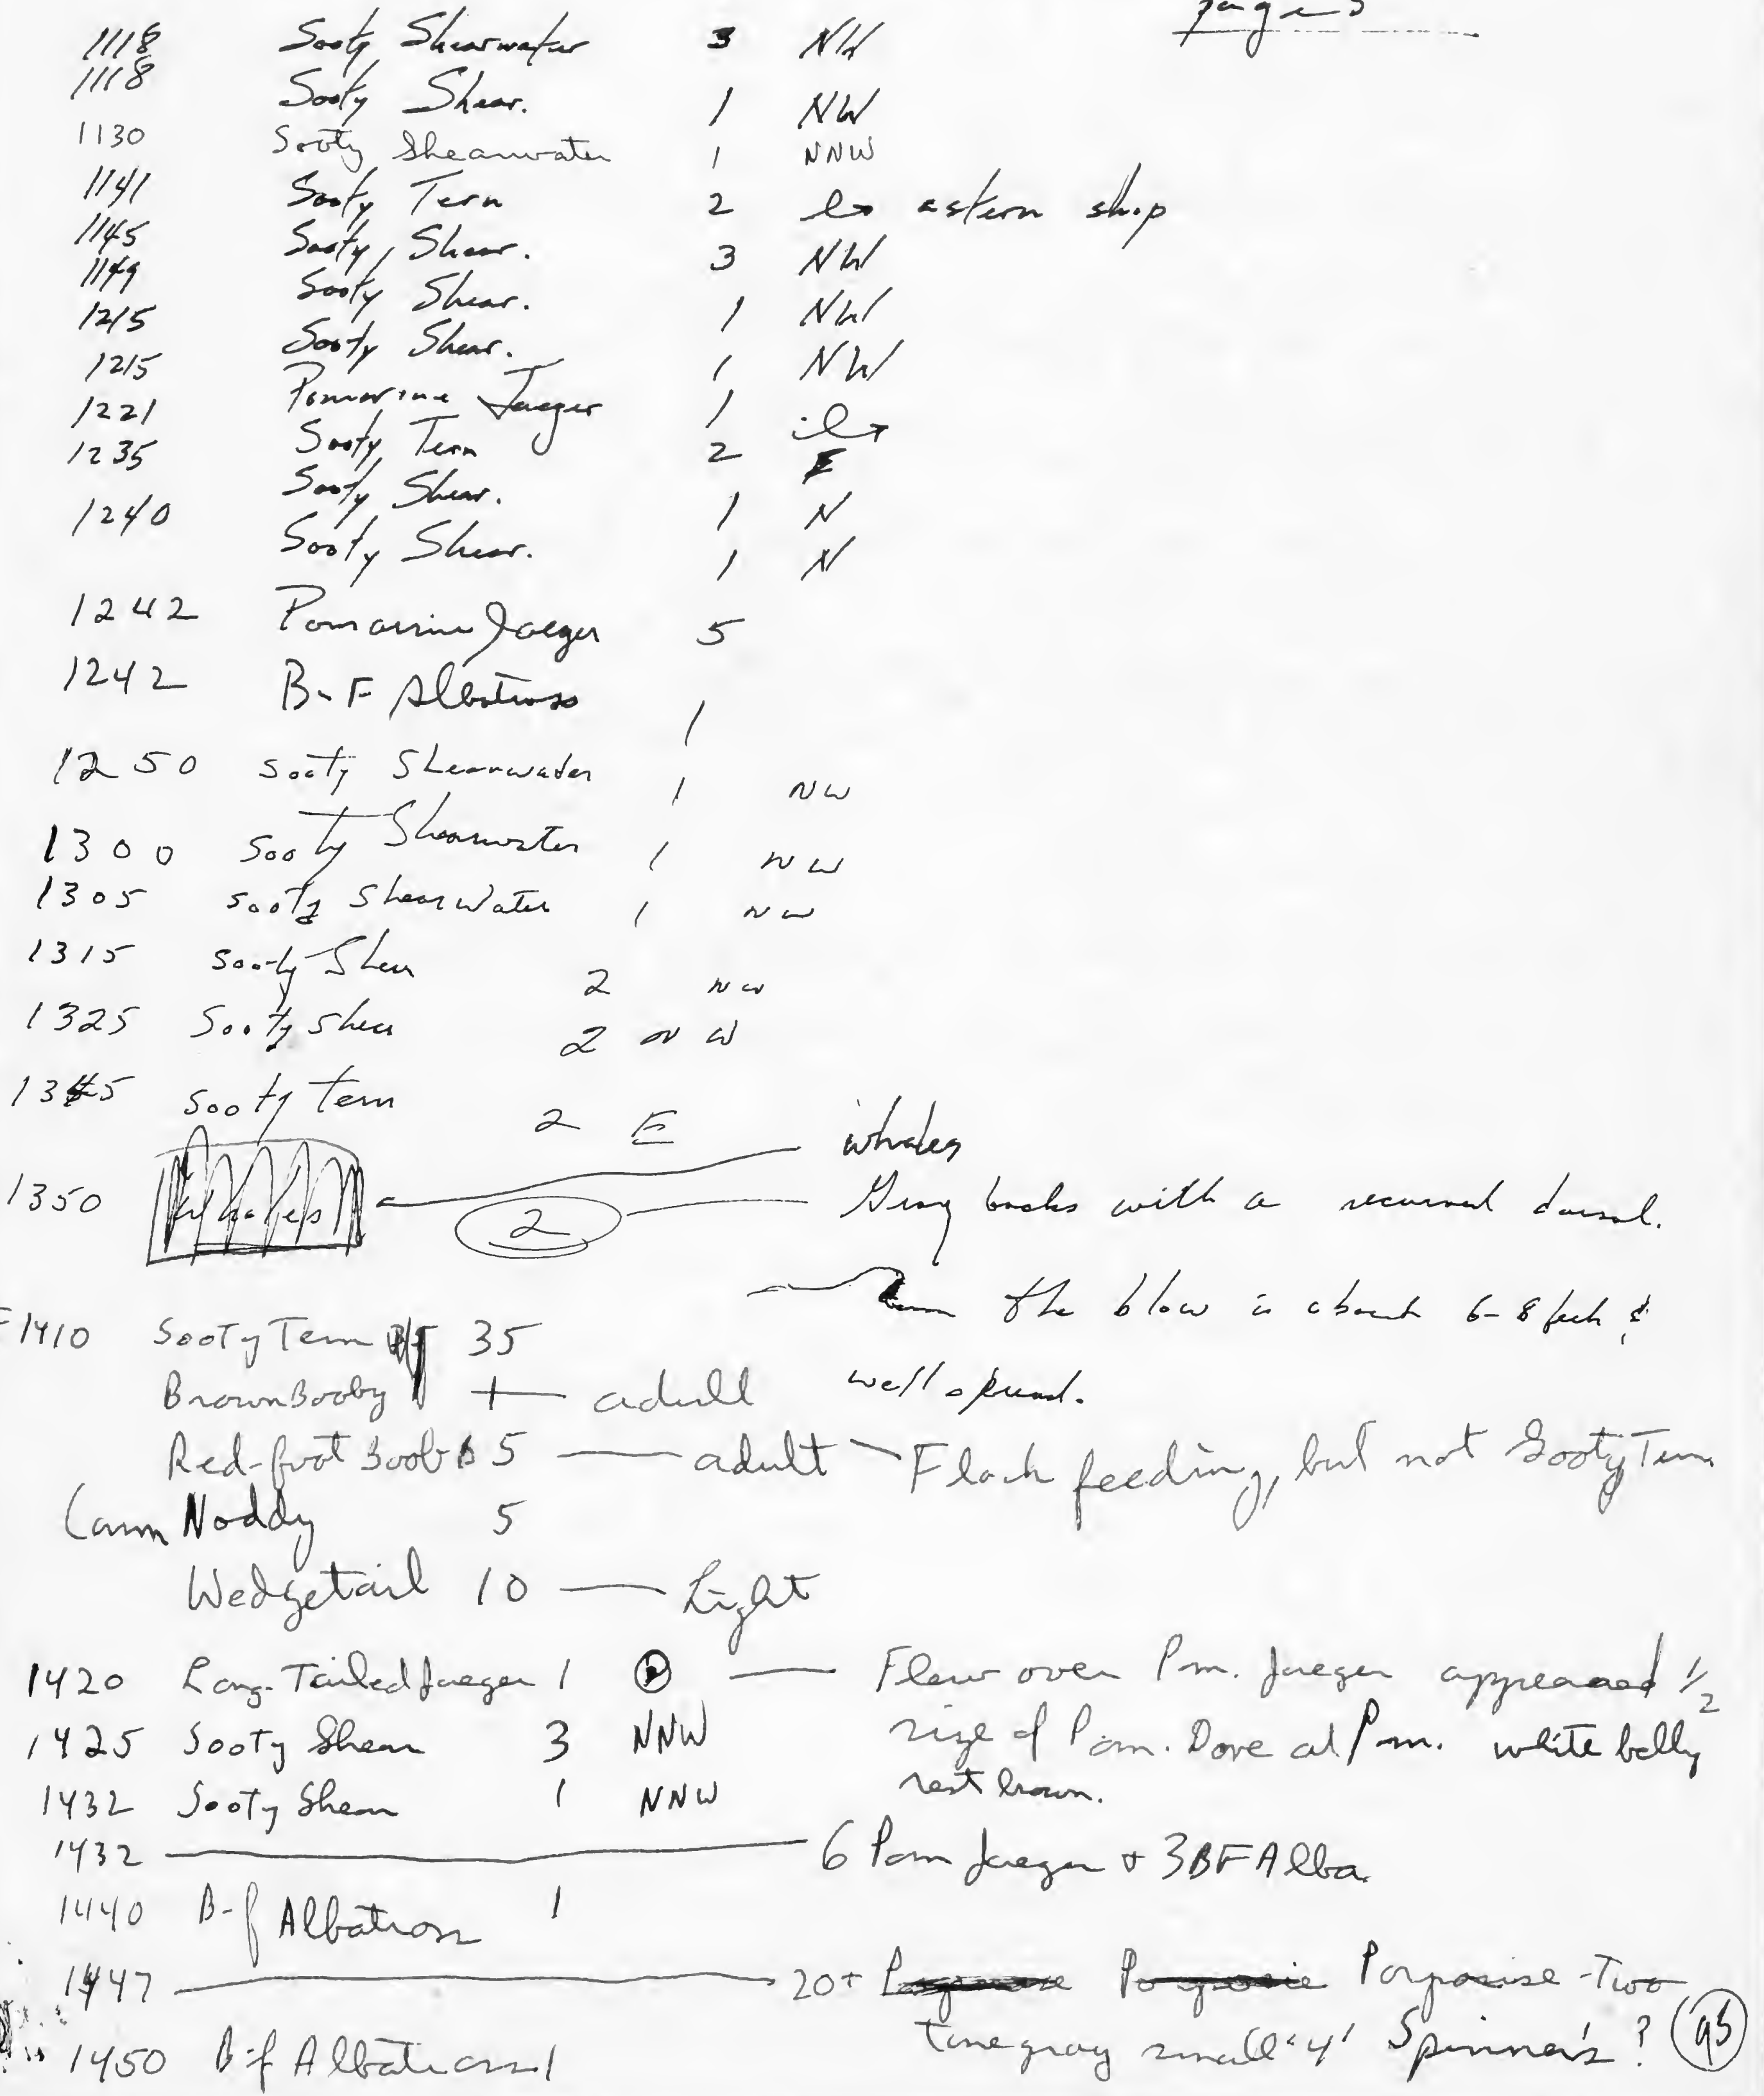 page 5
1118 Sooty Shearwater 3 NW
1118 Sooty Shear. 1 NW
1130 Sooty Shearwater 1 NNW
1141 Sooty Tern 2 astern ship
1145 Sooty Shear. 3 NW
1149 Sooty Shear. 1 NW
1215 Sooty Shear. 1 NW
1215 Pomarine Jaeger 1
1221 Sooty Tern 2 E
1235 Sooty Shear. 1 N
1240 Sooty Shear. 1 N
1242 Pomarine Jaeger 5
1242 B-F Albatross 1
1250 Sooty Shearwater 1 NW
1300 Sooty Shearwater 1 NW
1305 Sooty Shearwater 1 NW
1315 Sooty Shear 2 NW
1325 Sooty Shear 2 NW
1345 Sooty Tern 2 E
whales
1350 Whales 2 Gray backs with a recurved dorsal.
the blow is about 6-8 feet &
1410 Sooty Tern 35
Brown Booby 1 — adult well spread.
Red-foot Boob 5 — adult Flock feeding, but not Sooty Tern
Comm Noddy 5
Wedgetail 10 — Light
1420 Long-Tailed Jaeger 1 — Flew over Pm. Jaeger appreared 1/2
1425 Sooty Shear 3 NNW size of Pom. Dove at Pm. white belly
1432 Sooty Shear 1 NNW rest brown.
1432 — 6 Pom Jaeger + 3 BF Alba.
1440 B-f Albatross 1
1447 — 20+ Porpoise - Two
tone gray small '4' Spinners?
1450 B-f Albatross 1
95